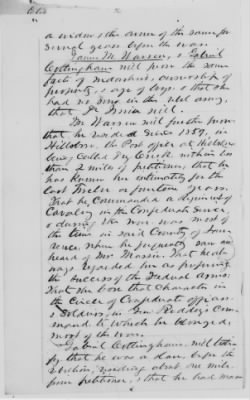 a widow & the owner of the same for
several years before the war.
James M. Warren, & Gabriel
Cottingham will prove the same
facts of Medarkus, ownership of
property, & age of boys & that she
had no sons in the rebel army,
that Dr. will.
Mr Warren will further prove
that he resided since 1859, in
Hillsboro, the Post office at Hillsboro
being called
than 2 miles of petitioner, that he
has known her intimately for the
last twelve or fourteen years.
That he commanded a Regiment of
Cavalry in the Confederate service
& during the war was most of
the time in said County of Law-
rence, where he frequently saw and
heard of Mrs Massie. That he al-
ways regarded her as favoring
the success of the Federal Arms.
That she bore that Character in
the Circle of Confederate officers
& Soldiers, in Gen. Roddeys Com-
mand to which he belonged,
most of the war.
Gabriel Cottingham, will testi-
fy that he was a slave, before the
rebellion, residing about one mile
from petitioner, & that he had